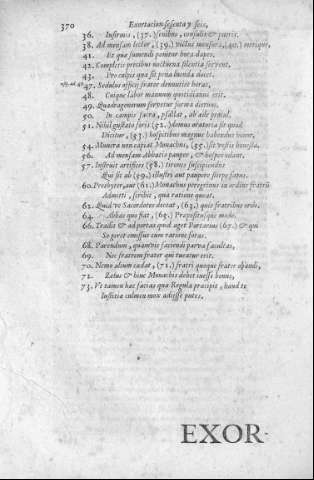 370 Exortacion sesenta y seis,
36. Infirmis, (37.) senibus, consulit & pueris.
38. Ad mensam lector, (39.) victus mensura, (40.) merique,
41. Et qua sumendi ponitur hora dapes.
42. Completis precibus nocturna silentia servent,
43. Pro culpis que sit pena luenda docet.
47. Sedulus officij frater denuntiet horas,
48. Cuique labor manuum quotidianus erit.
49. Quadragenarum servetur forma dierum,
50. In campis sacra, psallat, ab aede procul.
51. Nihil gustato foris (52.) domus oratoria sit quod
Dicitur, (53.) hospitibus magnus habendus honor,
54. Munera non capiat Monachus, (55.) sit vestis honesta,
56. Ad mensam Abbatis pauper, & hospes edant,
57. Instruit artifices (58.) tirones suscipiendos
Qui sit ab (59.) illustri aut paupere stirpe satus.
60. Presbyter, aut (61.) Monachus peregrinus in ordine fratrũ
Admitti, scribit, qua ratione queat.
62. Quid ve Sacerdotes deceat, (63.) quis fratribus ordo.
64. Abbas quo fiat, (65.) Prepositusque modo.
66. Tradit & ad portas quid agat Portarius (67.) & qui
So foret emissus cum ratione foras.
68. Parendum, quamvis faciendi parva facultas,
69. Nec fratrem frater qui tueatur erit.
70. Nemo alium cædat, (71.) fratri quoque frater obaudi,
72. Zelus & hinc Monachis debet inesse bonus,
73. Ut tamen hæc facias quæ Regula præcipit, haud te
Iustitiæ culmen mox adijsse putes.
EXOR-